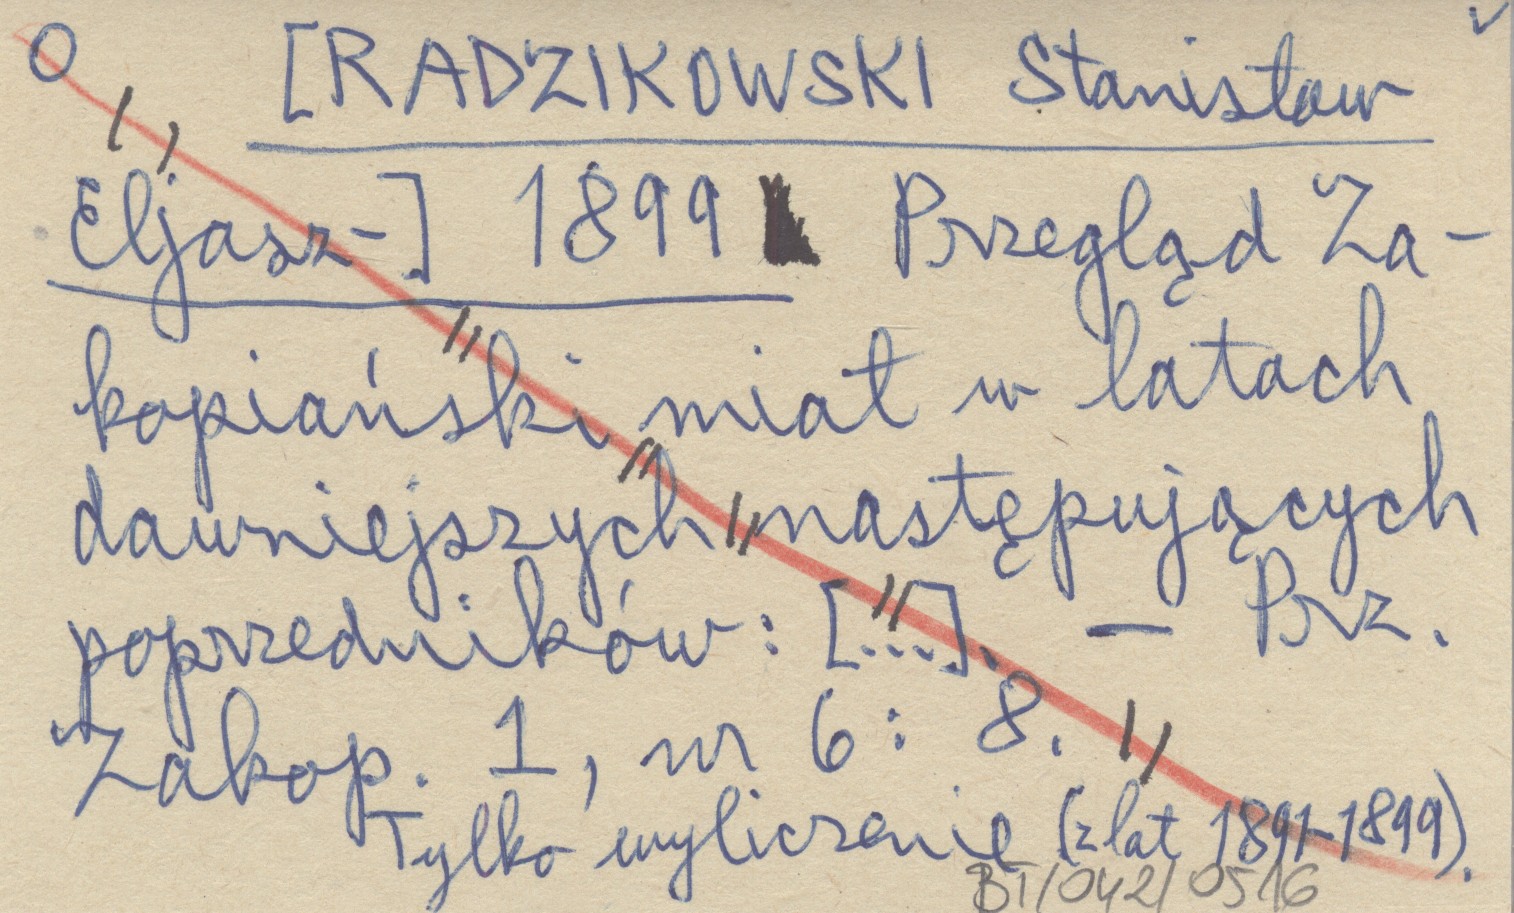 O [RADZIKOWSKI Stanisław
Eljasz-] 1899 Przegląd Za-
kopiański miał w latach
dawniejszych następujących
poprzedników: [...]. — Prz.
Zakop. 1, nr 6: 8.
Tylko wyliczenie (z lat 1891-1899).
BT/042/0516